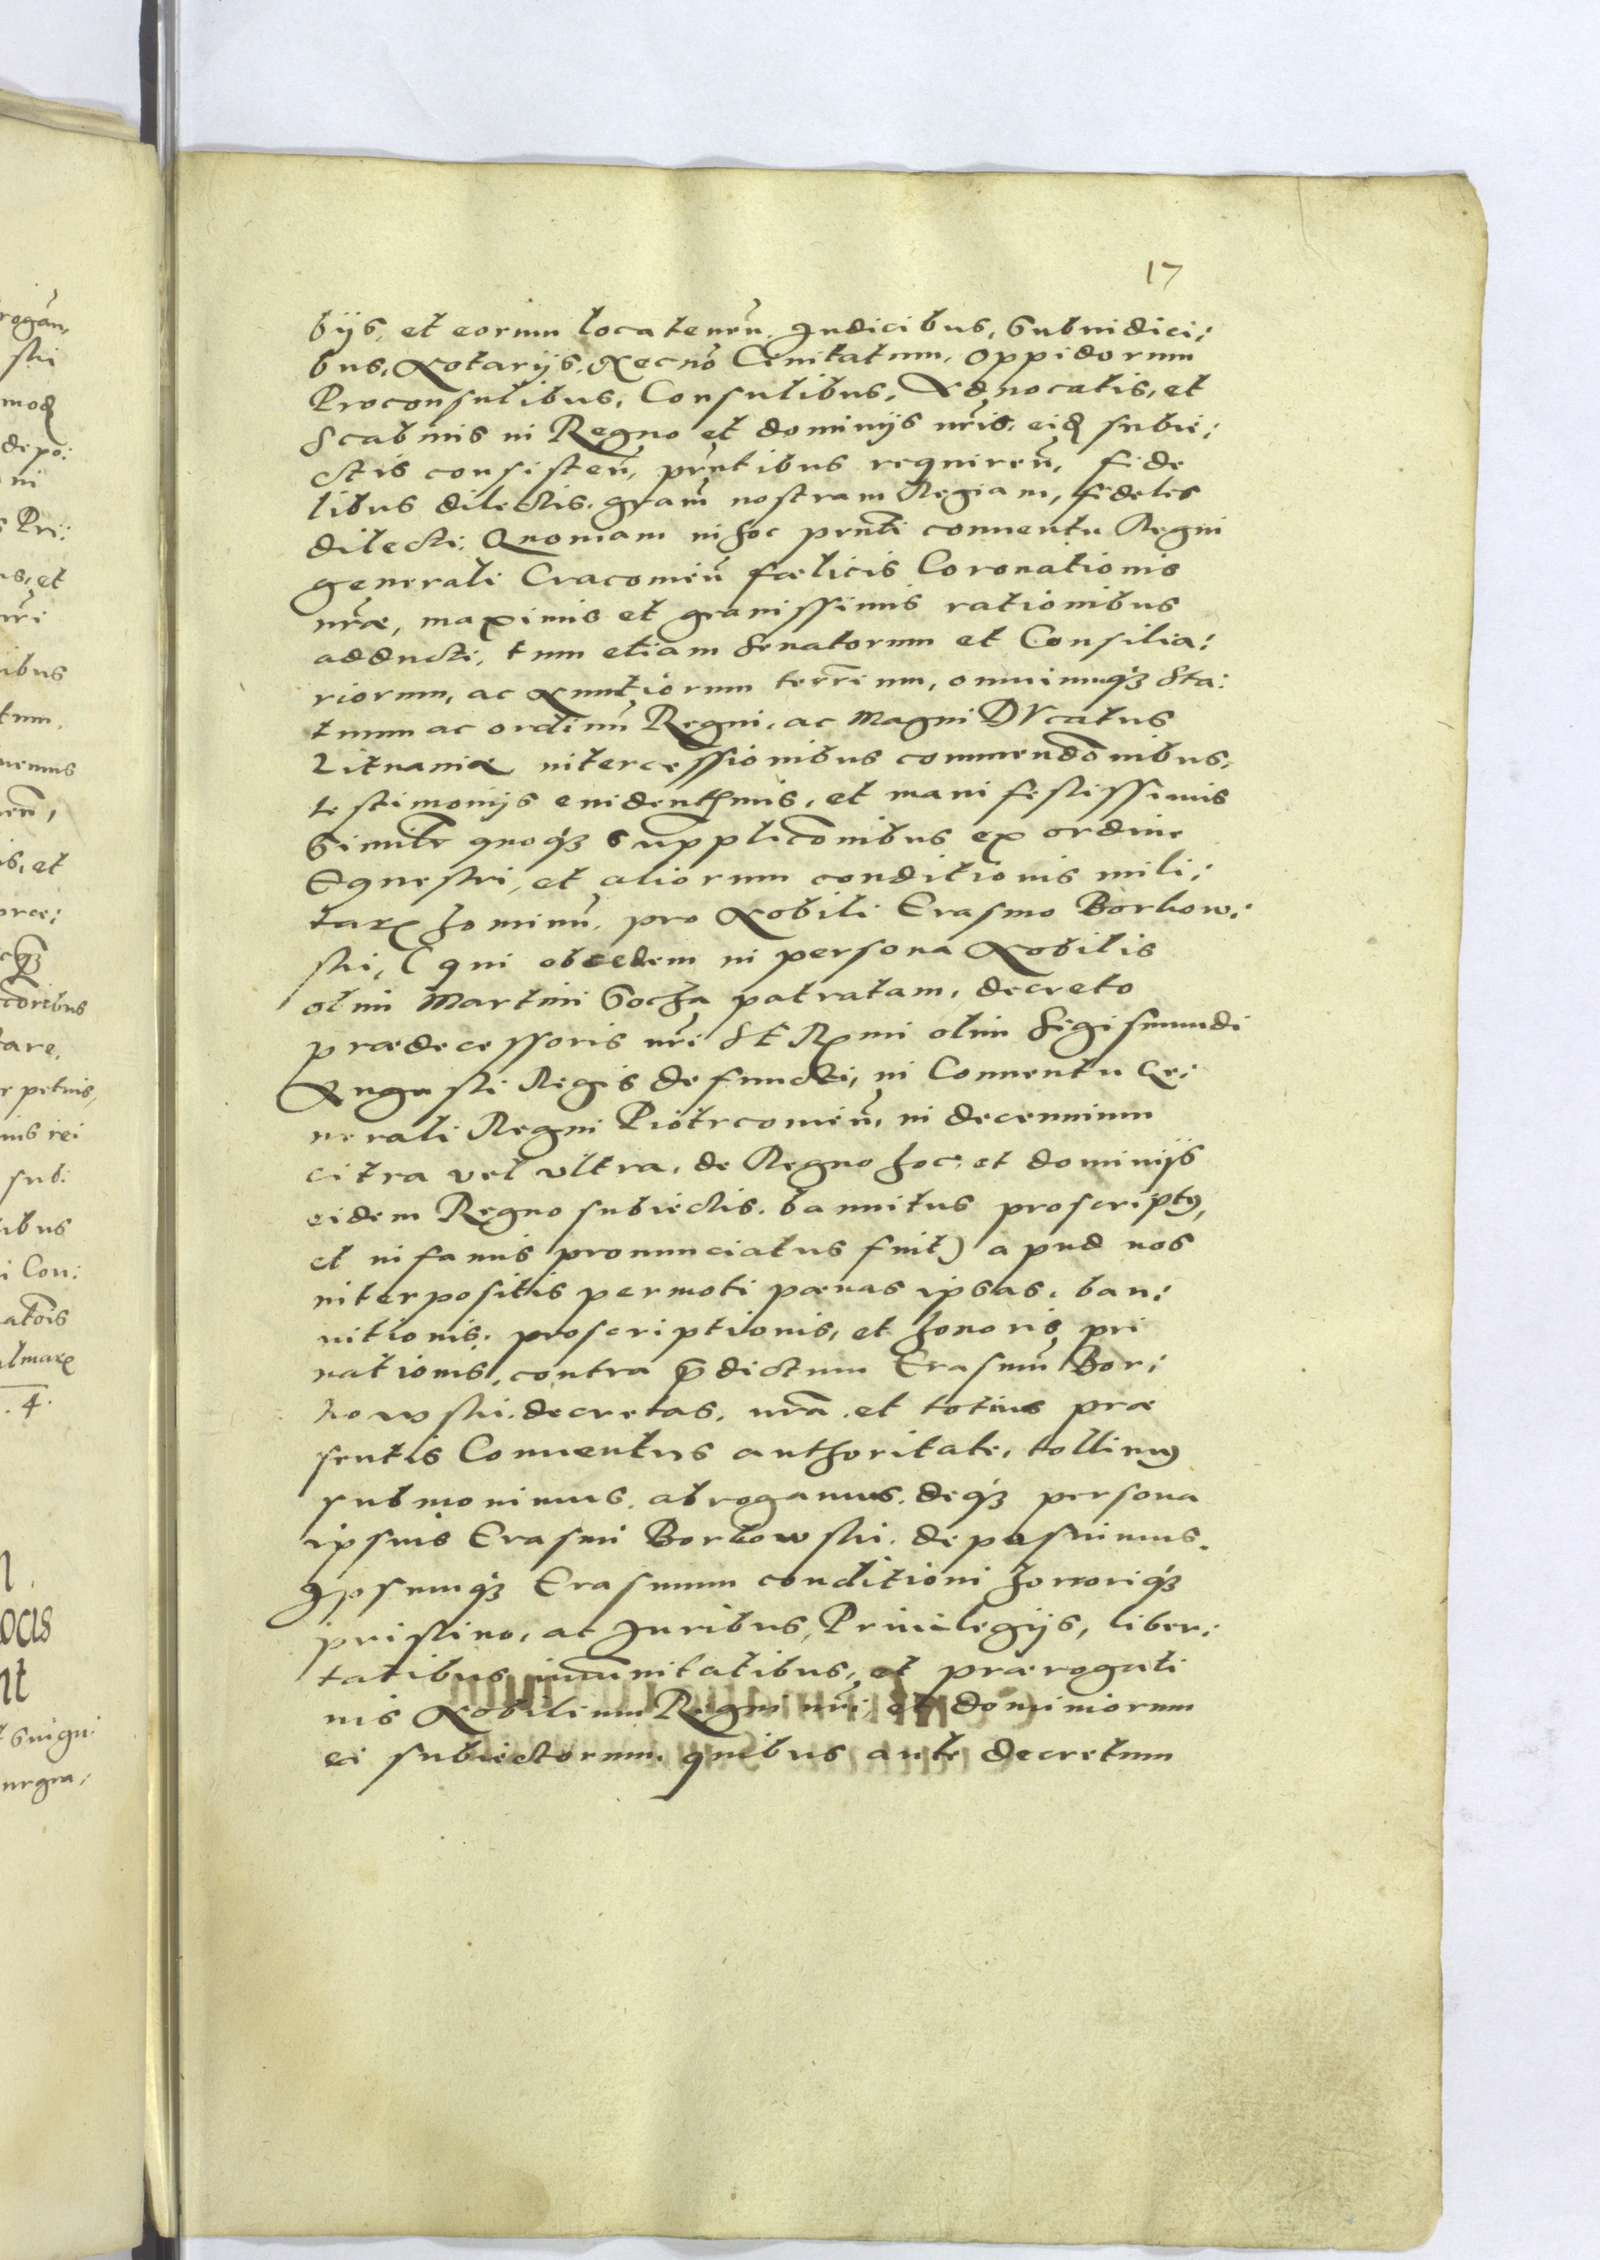 17
bijs, et eorum locatenen̄, Judicibus, Subiudici:
bus, Notarijs, Necno͂ Ciuitatum, Oppidorum
Proconsulibus, Consulibus, Aduocatis, et
Scabinis in Regno et dominijs nr̄is, eid subie:
ctis consisten̄, pr̄ntibus requiren̄, fide
libus dilectis, gram̄ nostram Regiam, fideles
dilecti: Quoniam in hoc prnti conuentu Regni
generali Cracouien̄ fœlicis Coronationis
nr̄æ, maximis et grauissimis rationibus
adducti, tum etiam Senatorum et Consilia:
riorum, ac Nuntiorum terr̄rum, omniumq̃ Sta:
tuum ac ordinū Regni, ac Magni DVcatus
Lituaniæ intercessionibus commendōnibus,
testimonijs euidentissimis, et manifestissimis
Similr̄ quoq̃ supplicōnibus ex ordine
Equestri, et aliorum conditionis mili:
taris hominū, pro Nobili Erasmo Borkow:
ski, (qui ob cedem in persona Nobilis
olim Martini Socha patratam, decreto
prædecessoris nr̄i Sermi olim Sigismundi
Augusti Regis defuncti, in Conuentu Ge:
nerali Regni Piotrcouien̄, in decennium
citra vel vltra, de Regno hoc, et dominijs
eidem Regno subiectis, bannitus proscriptus,
et infamis pronunciatus fuit) apud nos
interpositis permoti pœnas ipsas, ban:
nitionis, proscriptionis, et honoris pri
uationis, contra p̄dictum Erasmū Bor:
kowski decretas, nr̄a et totius præ
sentis Conuentus authoritate, tollimus
submouimus, abrogamus, deq̃ persona
ipsius Erasmi Borkowski deposuimus.
Ipsumq̃ Erasmum conditioni honoriq̃
pristino, ac Juribus, Priuilegijs, liber:
tatibus, imunitatibus, et prærogati
uis Nobilium Regni nr̄i, et dominiorum
ei subiectorum, quibus ante decretum